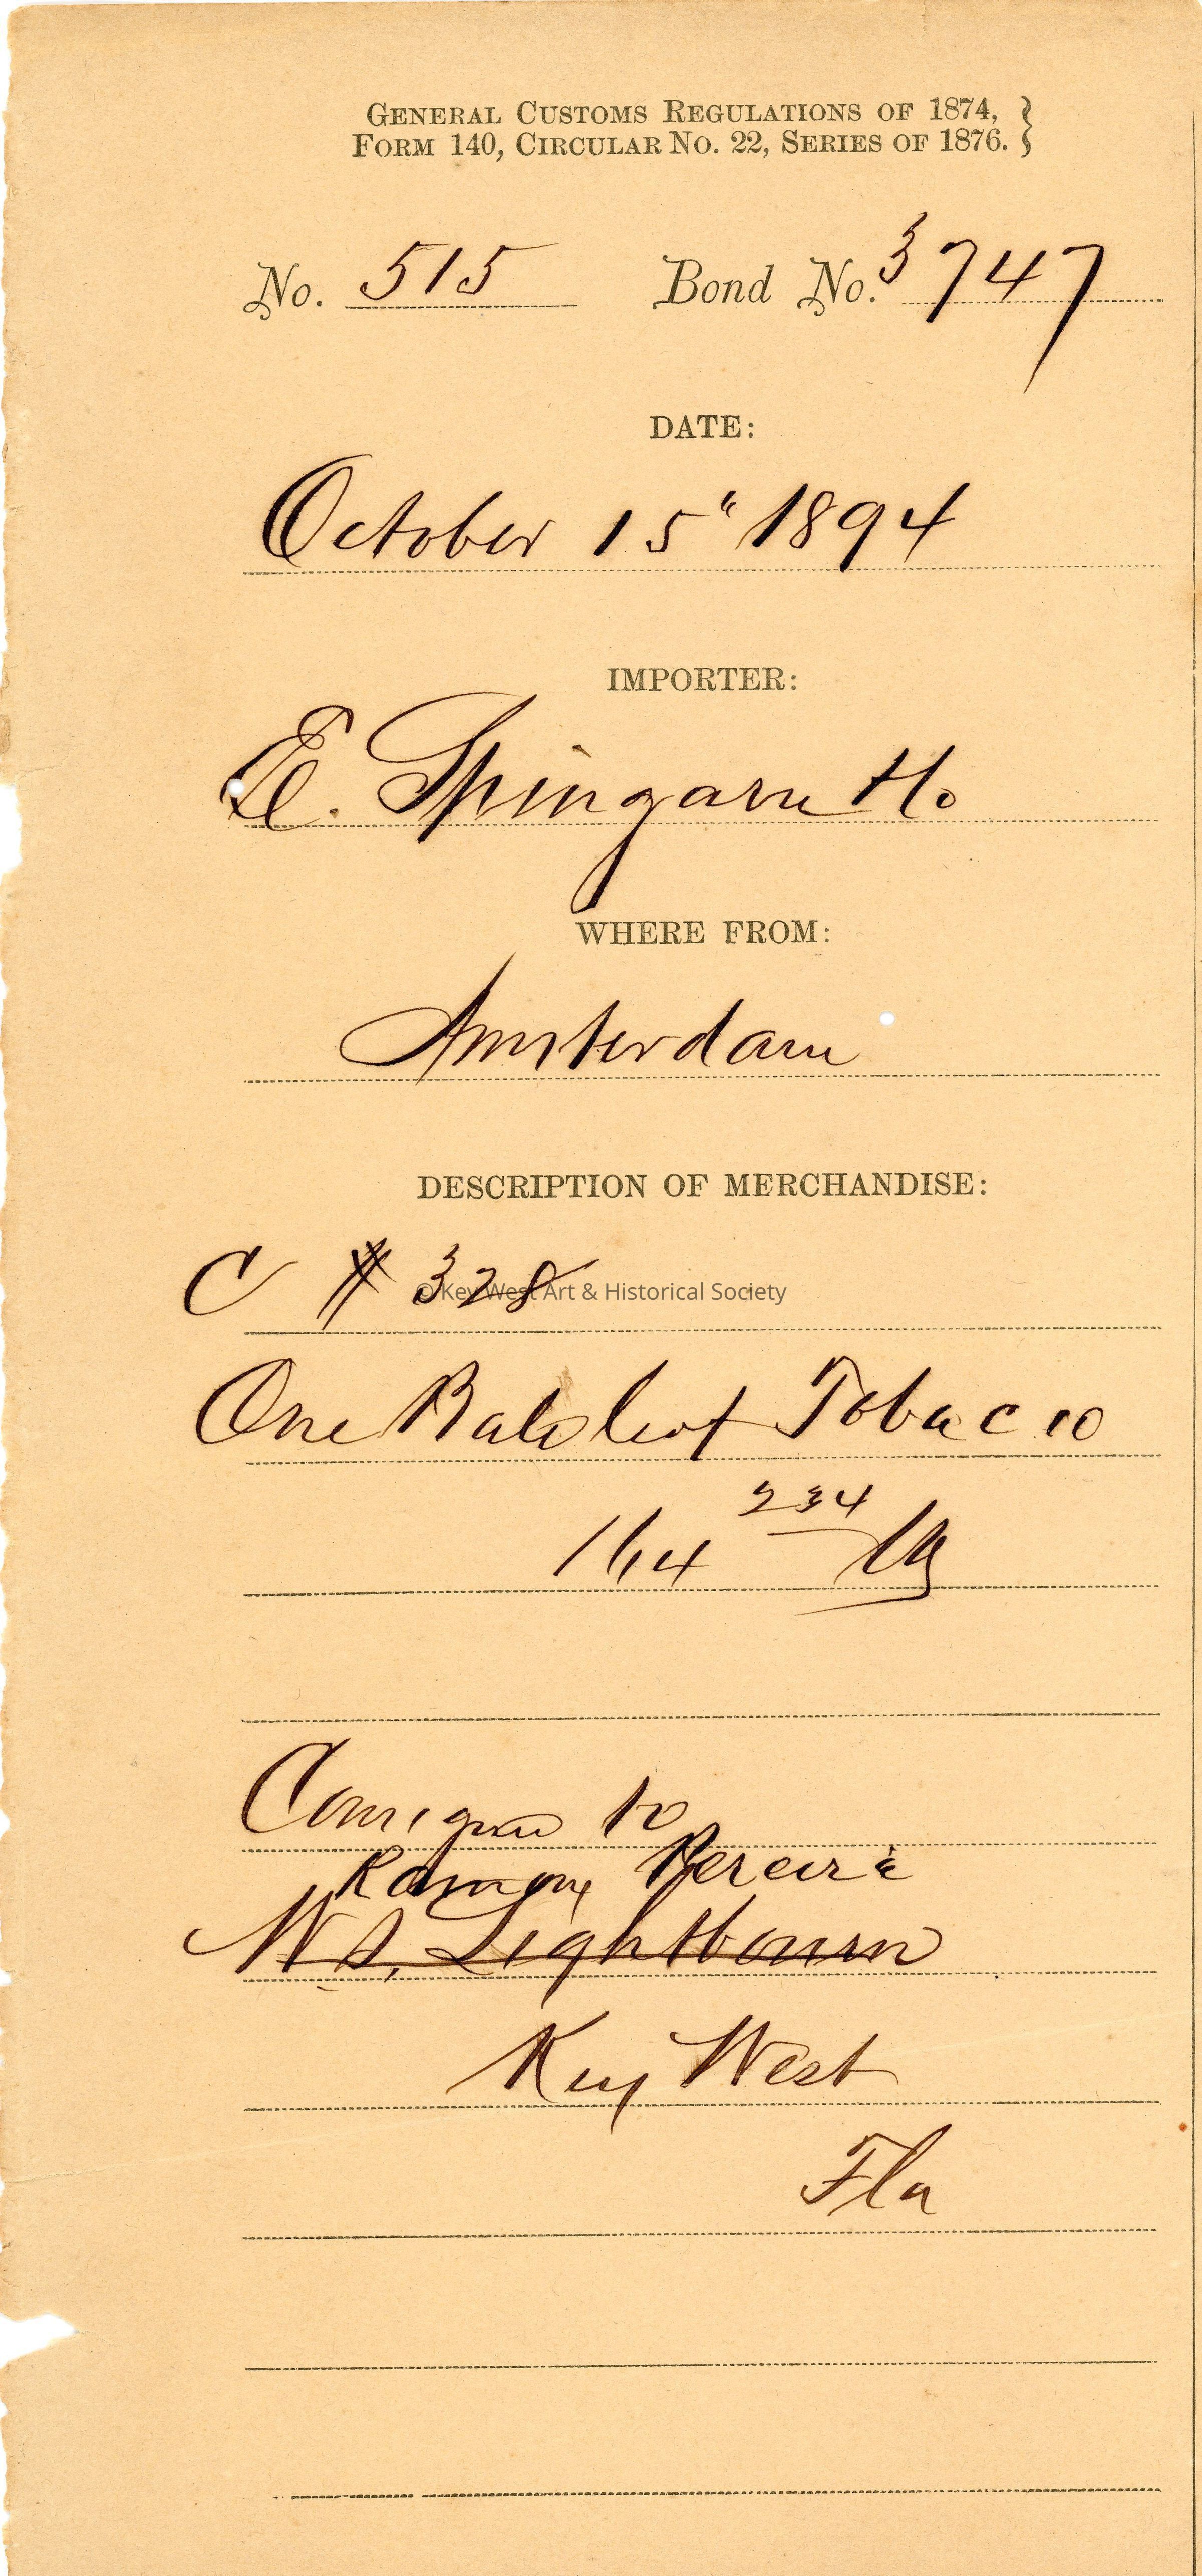 GENERAL CUSTOMS REGULATIONS OF 1874, }
FORM 140, CIRCULAR No. 22, SERIES OF 1876. }
No. 515 Bond No. 3747
DATE:
October 15" 1894
IMPORTER:
E. Spingarn & Co
WHERE FROM:
Amsterdam
DESCRIPTION OF MERCHANDISE:
C # 328
© Key West Art & Historical Society
One Bale leaf Tobacco
164 234
Consigned to
Ramon Pereira
W. A. Lightbourn
Key West
Fla